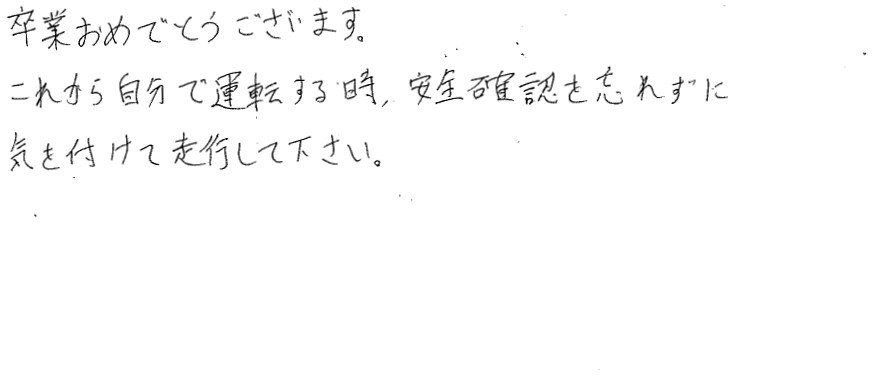 卒業おめでとうございます。
これから自分で運転する時、安全確認を忘れずに
気を付けて走行して下さい。